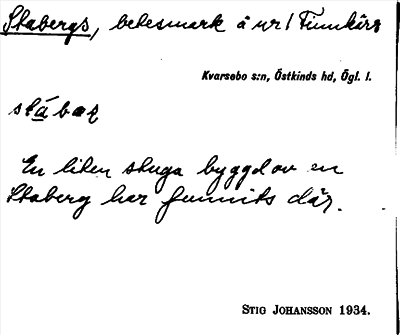 Stabergs, betesmark å nr 1 Finnkärr
Kvarsebo s:n, Östkinds hd, Ögl. l.
stábær
En liten stuga byggd av en
Staberg har funnits där.
STIG JOHANSSON 1934.